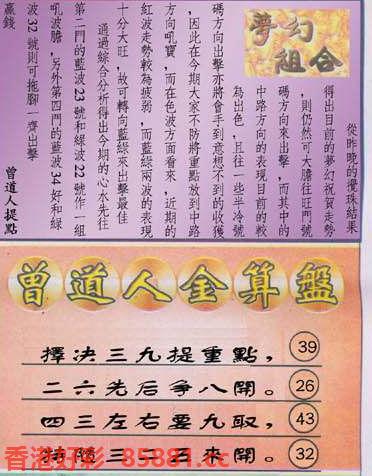 夢幻
組合
從昨晚的攪珠結果
得出目前的夢幻祝賀走勢
，則仍然可大膽往旺門號
碼方向來出擊，而其中的
中路方向的表現目前的較
為出色，且往一些半冷號
碼方向出擊亦將會手到意想不到的收獲
，因此在今期大家不防將重點放到中路
方向吼寶，而在色波方面看來，近期的
紅波走勢較為疲弱，而藍綠兩波的表現
十分大旺，故可轉向藍綠來出擊最佳
通過綜合分析得出今期的心水先往
第二門的藍波23號和綠波22號作一組
吼波膽，另外第四門的藍波34好和綠
波32號則可拖腳一齊出擊
贏錢 曾道人提點
曾道人金算盤
擇決三九提重點， 39
二六先后爭八開。 26
四三左右要九取， 43
三二 來開。 32
香港好彩 85881.cc